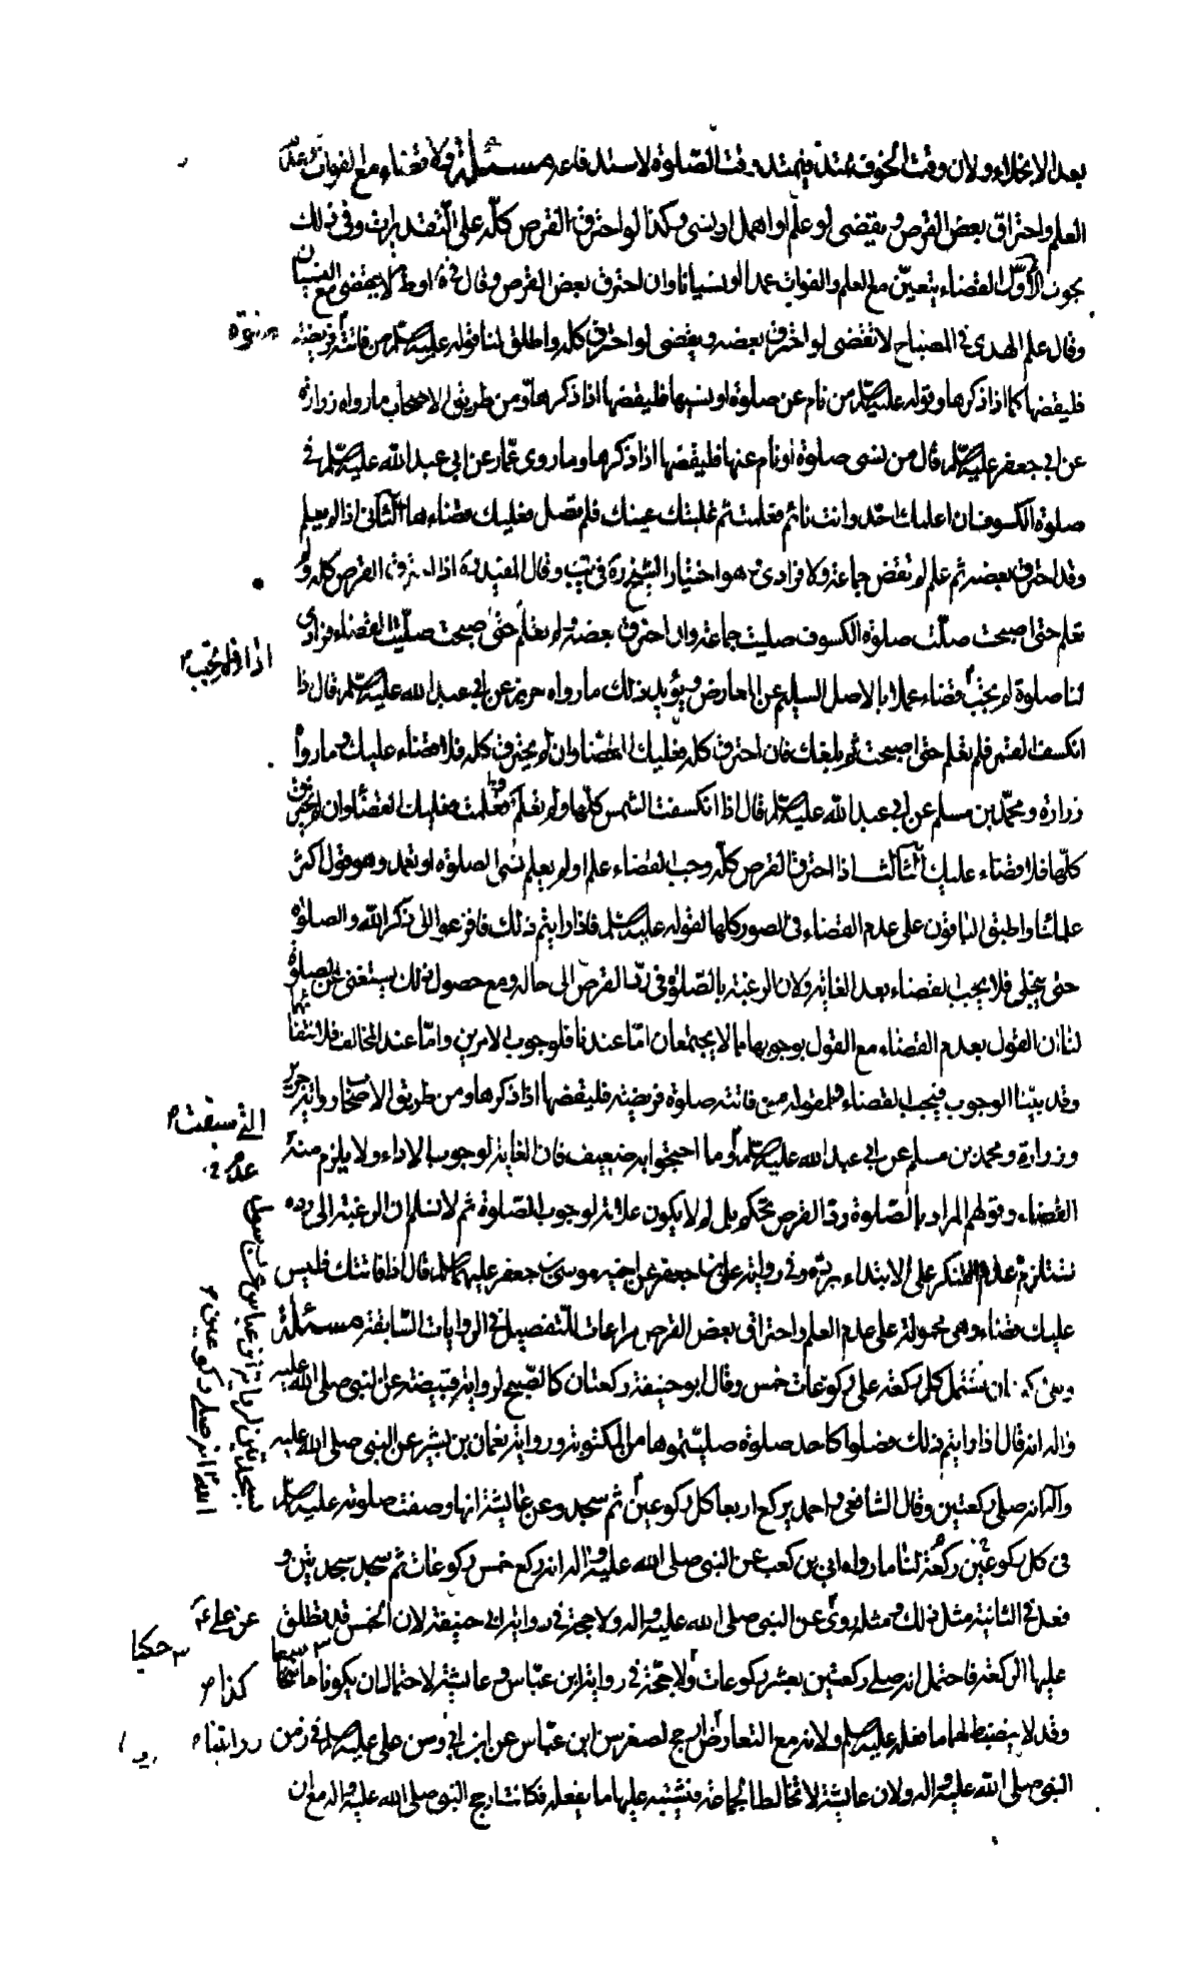 بعد الانجلاء ولان وقت الخوف يمتد فيمتد وقت الصلوة لاستدفاعه مسئلة ولا قضاء مع الفوات وعدم
العلم واحتراق بعض القرص ويقضى لو علم او اهمل او نسى وكذا لو احترق القرص كله على التقديرات وفى ذلك
بحوث الأول القضاء يتعين مع العلم والفوات عمدا او نسيانا وان احترق بعض القرص وقال فى لا يقضى مع النسيان
وقال علم الهدى فى المصباح لا تقضى لو احترق بعضه ويقضى لو احترق كله واطلق لنا قوله عليه السلم من فاتته فريضة
فليقضها كما اذا ذكرها وقوله عليه السلم من نام عن صلوة او نسيها فليقضها اذا ذكرها ومن طريق الاصحاب ما رواه زرارة
عن ابى جعفر عليه السلم قال من نسى صلوة او نام عنها فليقضها اذا ذكرها وما روى عمار عن ابى عبد الله عليه السلم فى
صلوة الكسوف ان اعلمك احد وانت نائم فعلمت ثم غلبتك عينك فلم تصل فعليك قضاءها الثانى اذا لم يعلم
وقد احترق بعضه ثم علم لم تقض جماعة ولا فرادى وهو اختيار الشيخ ره فى يب وقال المفيد ره اذا احترق القرص كله ولم
تعلم حتى اصبحت صليت صلوة الكسوف صليت جماعة وان احترق بعضه ولم تعلم حتى اصبحت صليت القضاء فرادى
لنا صلوة لم يجب قضاء عملا بالاصل السليم عن المعارض ويؤيد ذلك ما رواه حريز عن ابى عبد الله عليه السلم قال اذا
انكسف القمر فلم تعلم حتى اصبحت ثم بلغك فان احترق كله فعليك القضاء وان لم يحترق كله فلا قضاء عليك وما رواه
زرارة ومحمد بن مسلم عن ابى عبد الله عليه السلم قال اذا انكسفت الشمس كلها ولم تعلم وعلمت فعليك القضاء وان لم يحترق
كلها فلا قضاء عليك الثالث اذا احترق القرص كله وجب القضاء علم او لم يعلم نسى الصلوة او تعمد وهو قول اكثر
علمائنا واطبق الباقون على عدم القضاء فى الصور كلها لقوله عليه السلم فاذا رايتم ذلك فافزعوا الى ذكر الله والصلوة
حتى ينجلى فلا يجب القضاء بعد الغاية ولان الرغبة بالصلوة فى رد القرص الى حاله ومع حصول ذلك يستغنى عن الصلوة
لنا ان القول بعدم القضاء مع القول بوجوبها مما لا يجتمعان اما عندنا فلوجوب الامرين واما عند المخالف فلانتفائهما
وقد بيّنا الوجوب فيجب القضاء ولقوله من فاتته صلوة فريضة فليقضها اذا ذكرها ومن طريق الاصحاب رواية حريز
وزرارة ومحمد بن مسلم عن ابى عبد الله عليه السلم وما احتجوا به ضعيف فان الغاية لوجوب الاداء ولا يلزم منه
القضاء وقولهم المراد بالصلوة رد القرص تحكم بل لم لا يكون علامة لوجوب الصلوة ثم لا نسلم ان الرغبة الى رده
تستلزم عدم الشكر على الابتداء برده وفى رواية على بن جعفر عن اخيه موسى بن جعفر عليهما السلم قال اذا فاتتك فليس
عليك قضاء وهى محمولة على عدم العلم واحتراق بعض القرص مراعات للتفصيل فى الروايات السابقة مسئلة
ان تشتمل كل ركعة على ركوعات خمس وقال ابو حنيفة ركعتان كالصبح لرواية قبيصة عن النبى صلى الله عليه
واله انه قال اذا رايتم ذلك فصلوا كاحد صلوة صليتموها من المكتوبة ورواية نعمان بن بشير عن النبى صلى الله عليه
واله انه صلى ركعتين وقال الشافعى واحمد يركع اربعا كل ركوعين ثم سجد وعن عايشة انها وصفت صلوته عليه السلم
فى كل ركوعين ركعة لنا ما رواه ابى بن كعب عن النبى صلى الله عليه واله انه ركع خمس ركوعات ثم سجد سجدتين و
فعل فى الثانية مثل ذلك ومثله روى عن النبى صلى الله عليه واله ولا حجة فى رواية ابى حنيفة لان الخمس قد تطلق
عليها الركعة فاحتمل انه صلى ركعتين بعشر ركوعات ولا حجة فى رواية ابن عباس وعايشة لاحتمال ان يكونا ما سمعا
وقد لا يضبطا لهما ما فعله عليه السلم ولانه مع التعارض ارجح لصغر سن ابن عباس عن ابى وسن على عليه السلم فى زمن
النبى صلى الله عليه واله ولان عايشة لا تخالط الجماعة فيشتبه عليها ما يفعله فكانت ارجح النبى صلى الله عليه واله مع ان
اذا لم يجب
التى سبقت
عدم
سجدتين لرواية ابن عباس
انه صلى ركوعين
عن على ع
حكيا
كذا
روايتاه